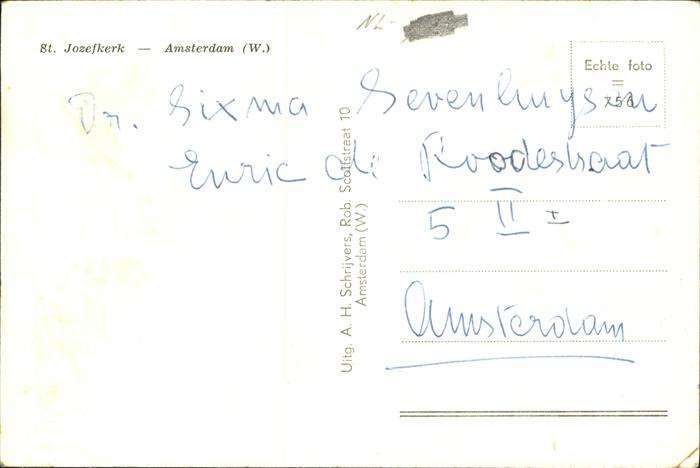 NL-
St. Jozefkerk — Amsterdam (W.)
Echte foto
=
Dr. Sixma Sevenhuysen
Enric di Roodestraat
5 II I
Amsterdam
Uitg. A. H. Schrijvers, Rob. Scottstraat 10
Amsterdam (W.)